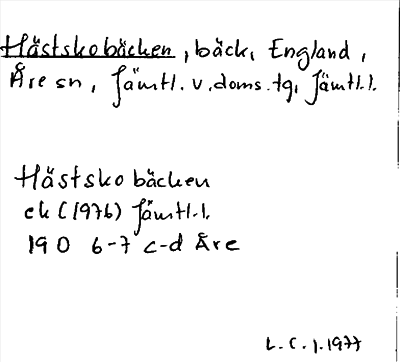 Hästskobäcken, bäck, England,
Åre sn, Jämtl. v. doms. tg, Jämtl.l.
Hästskobäcken
ek (1976) Jämtl.l.
19 0 6-7 c-d Åre
L. C. J. 1977